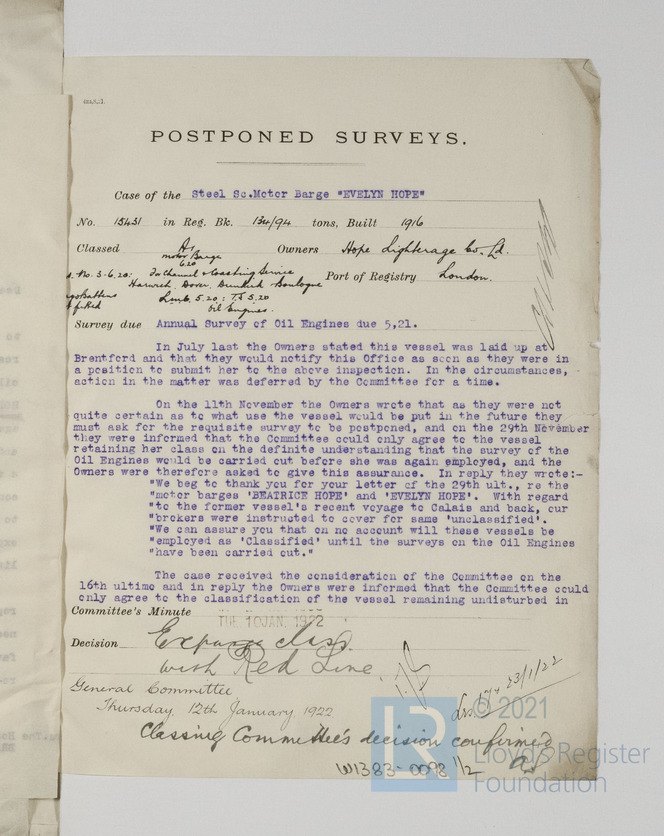 POSTPONED SURVEYS.
Case of the Steel Sc.Motor Barge "EVELYN HOPE"
No. 15431 in Reg. Bk. 134/94 tons, Built 1916
Classed A1 Owners Hope Lighterage Co. Ld.
motor Barge
6,20
No. 3-6.20: In Channel & Coasting Service Port of Registry London.
Harwich, Dover, Dunkirk & Boulogne
Lmb. 5.20: TS 5.20
Oil Engines.
Survey due Annual Survey of Oil Engines due 5,21.
In July last the Owners stated this vessel was laid up at
Brentford and that they would notify this Office as soon as they were in
a position to submit her to the above inspection. In the circumstances,
action in the matter was deferred by the Committee for a time.
On the 11th November the Owners wrote that as they were not
quite certain as to what use the vessel would be put in the future they
must ask for the requisite survey to be postponed, and on the 29th November
they were informed that the Committee could only agree to the vessel
retaining her class on the definite understanding that the survey of the
Oil Engines would be carried out before she was again employed, and the
Owners were therefore asked to give this assurance. In reply they wrote:-
"We beg to thank you for your letter of the 29th ult., re the
"motor barges 'BEATRICE HOPE' and 'EVELYN HOPE'. With regard
"to the former vessel's recent voyage to Calais and back, our
"brokers were instructed to cover for same 'unclassified'.
"We can assure you that on no account will these vessels be
"employed as 'Classified' until the surveys on the Oil Engines
"have been carried out."
The case received the consideration of the Committee on the
16th ultimo and in reply the Owners were informed that the Committee could
only agree to the classification of the vessel remaining undisturbed in
Committee's Minute
TUE. 10 JAN. 1922
Decision Expunge class
with Red Line.
General Committee
Thursday, 12th January, 1922
23/1/22
Classing Committee's decision confirmed
W1383-0098 1/2
LR
© 2021
Lloyd's Register
Foundation